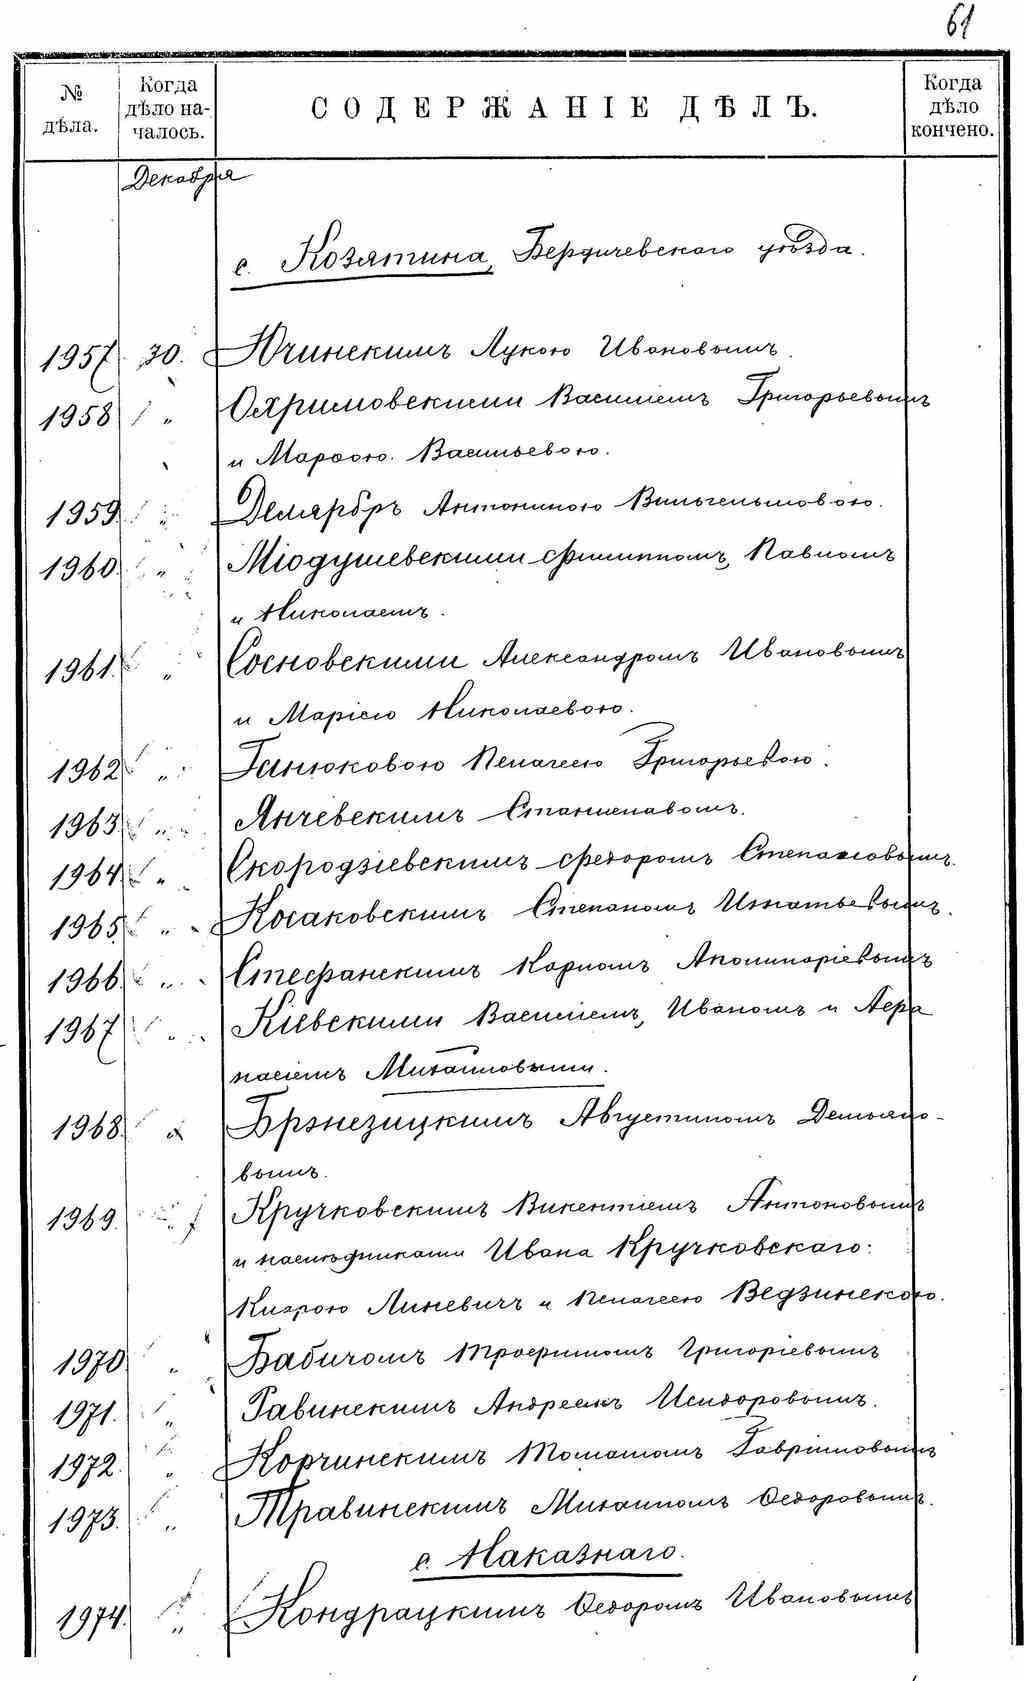 61
№ дѣла. Когда дѣло началось. СОДЕРЖАНІЕ ДѢЛЪ. Когда дѣло кончено.
Декабря
с. Козятина, Бердичевскаго уѣзда.
1957 30. Ючинскимъ Лукою Ивановымъ.
1958 " Охримовскими Василіемъ Григорьевымъ
и Марфою Васильевою.
1959. " Делярбръ Антониною Вильгельмовою.
1960. " Міодушевскими Филиппомъ, Павломъ
и Николаемъ.
1961. " Сосновскими Александромъ Ивановымъ
и Маріею Николаевою.
1962 " Ганюковою Пелагеею Григорьевою.
1963. " Янчевскимъ Станиславомъ.
1964. " Скородзіевскимъ Федоромъ Степановымъ.
1965. " Косаковскимъ Степаномъ Игнатьевымъ.
1966. " Стефанскимъ Карпомъ Аполинаріевымъ
1967 " Кіевскими Василіемъ, Иваномъ и Афа
насіемъ Михайловыми.
1968. " Брэнезицкимъ Августиномъ Демьяно-
вымъ.
1969. " Кручковскимъ Викентіемъ Антоновымъ
и наслѣдниками Ивана Кручковскаго:
Линевичъ и Пелагеею Ведзинскою.
1970. " Бабичомъ Трофимомъ Григоріевымъ
1971. " Равинскимъ Андреемъ Исидоровымъ.
1972. " Корчинскимъ Томашомъ Гавриловымъ
1973. " Травинскимъ Михаиломъ Ѳедоровымъ.
с. Наказнаго.
1974. " Кондрацкимъ Ѳедоромъ Ивановымъ